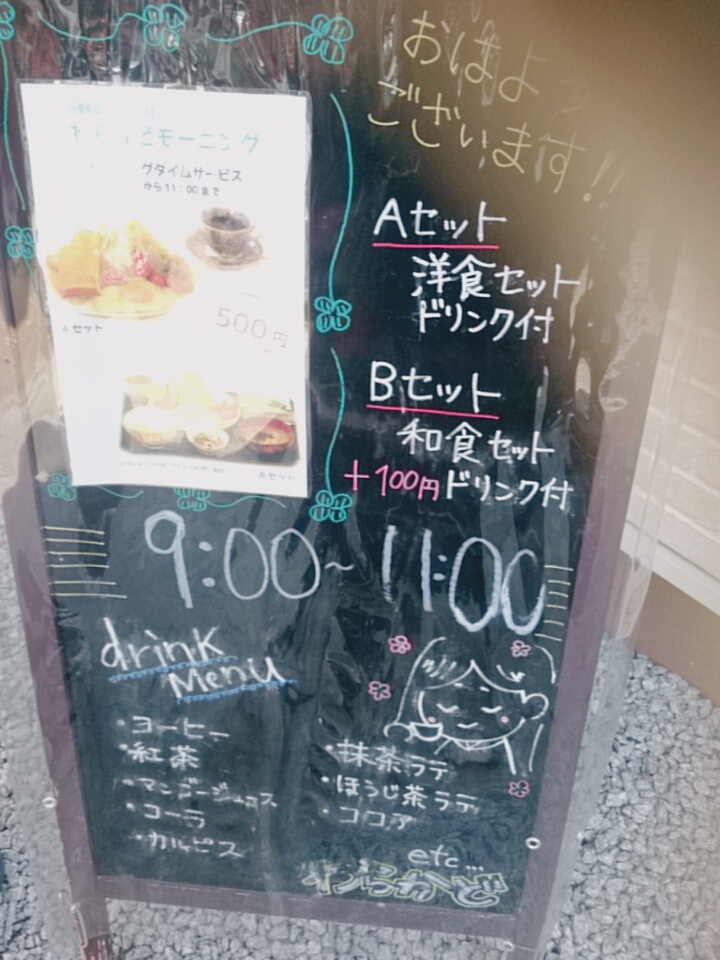 おはよう
ございます!!
モーニング
グタイムサービス
から11:00まで
500円
Aセット
Bセット
Aセット
洋食セット
ドリンク付
Bセット
和食セット
+100円ドリンク付
9:00~11:00
drink
Menu
・コーヒー
・紅茶
・マンゴージュース
・コーラ
・カルピス
・抹茶ラテ
・ほうじ茶ラテ
・ココア
etc...